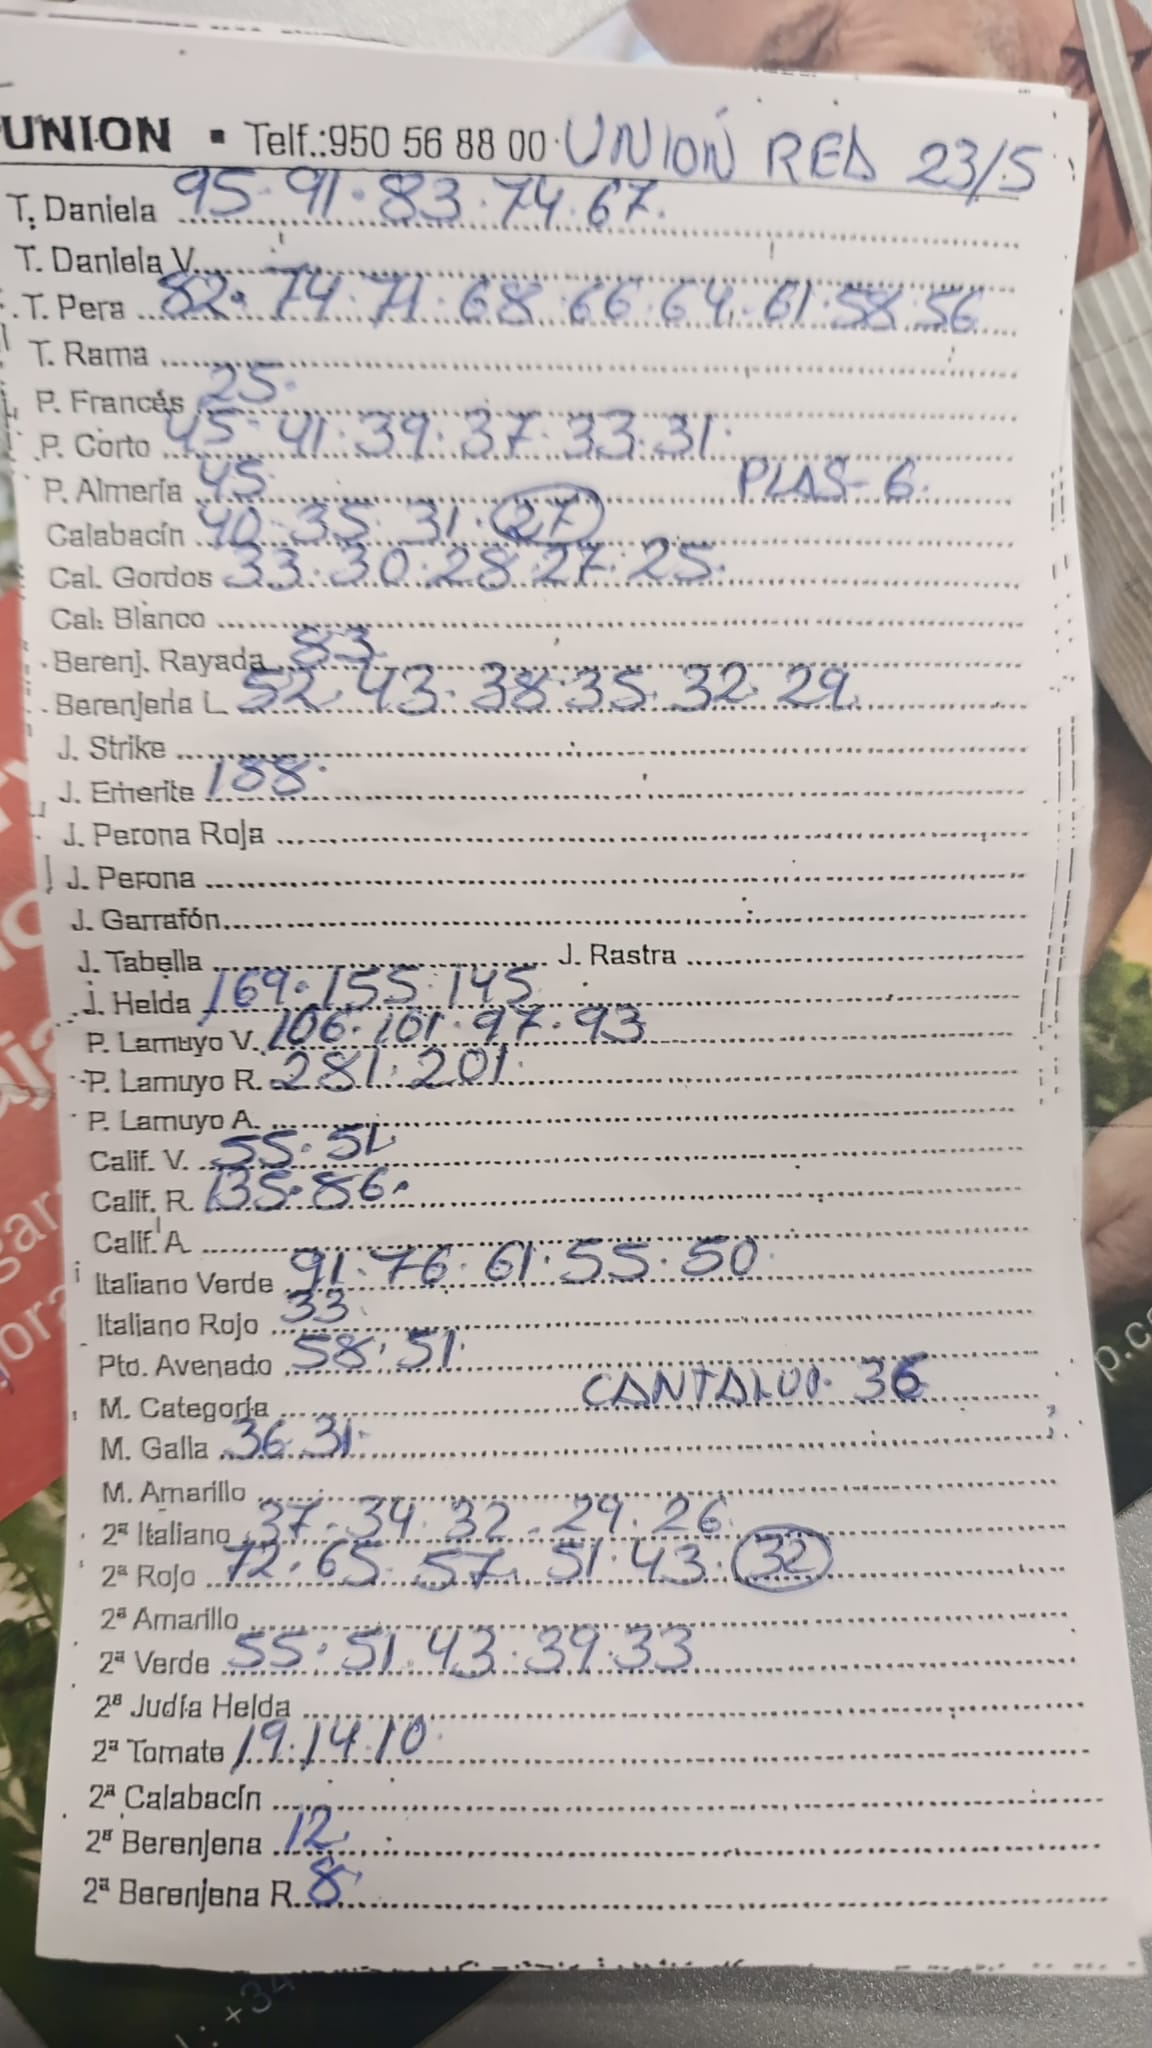 UNION ▪ Telf.:950 56 88 00 UNION RED 23/5
T. Daniela 95·91·83·74·67
T. Daniela V.
T. Pera 82·74·71·68·66·64·61·58·56
T. Rama
P. Francés 25
P. Corto 45·41·39·37·33·31
P. Almería 45 PLAS-6
Calabacín 40·35·31·27
Cal. Gordos 33·30·28·27·25
Cal. Blanco
Berenj. Rayada 83
Berenjena L. 52·43·38·35·32·29
J. Strike
J. Emerite 188
J. Perona Roja
J. Perona
J. Garrafón
J. Tabella J. Rastra
J. Helda 169·155·145
P. Lamuyo V. 106·101·97·93
P. Lamuyo R. 281·201
P. Lamuyo A.
Calif. V. 55·51
Calif. R. 135·86
Calif. A.
Italiano Verde 91·76·61·55·50
Italiano Rojo 33
Pto. Avenado 58·51
M. Categoría CANTALUP. 36
M. Galla 36·31
M. Amarillo
2ª Italiano 37·34·32·29·26
2ª Rojo 72·65·57·51·43·32
2ª Amarillo
2ª Verde 55·51·43·39·33
2ª Judía Helda
2ª Tomate 19·14·10
2ª Calabacín
2ª Berenjena 12
2ª Berenjena R. 8